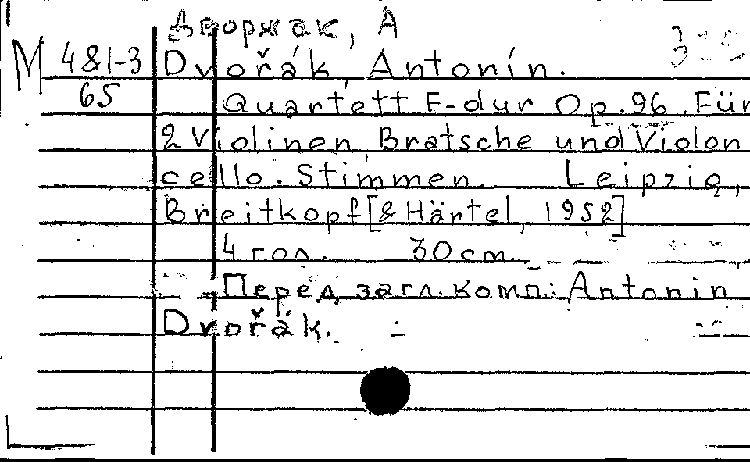 Дворжак, А
М 481-3 Dvořák, Antonín.
65 Quartett F-dur Op.96. Für
2 Violinen, Bratsche und Violon
cello. Stimmen. Leipzig,
Breitkopf [& Härtel, 1952]
4 гол. 30 cm.
Перед загл. комп.: Antonin
Dvořák.